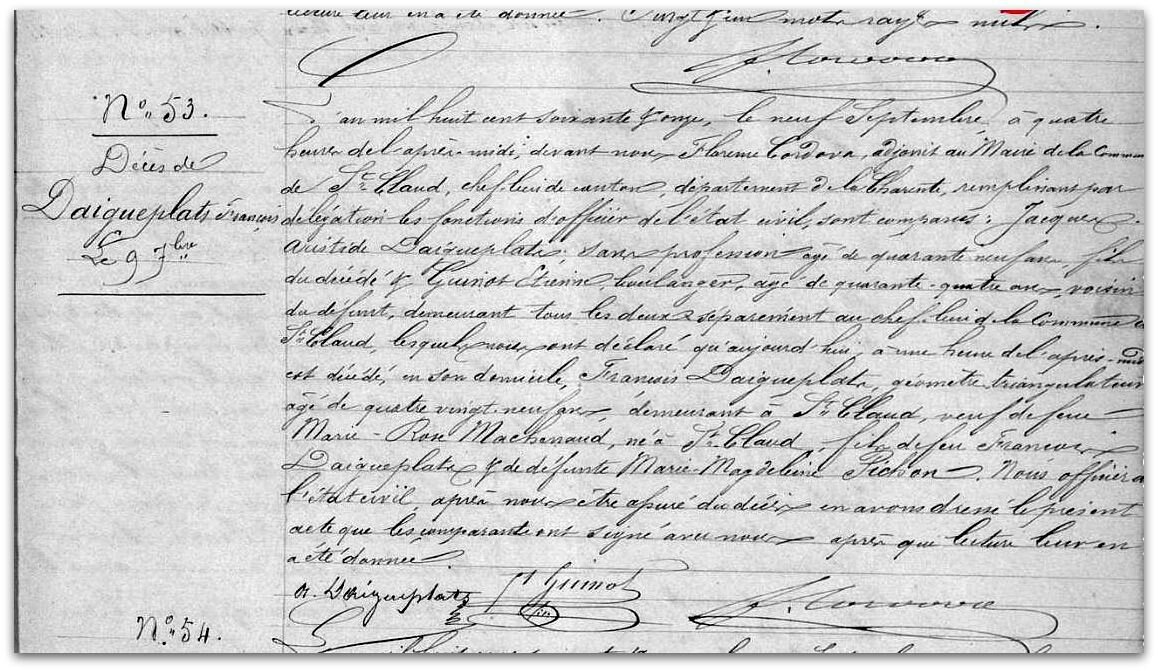 lecture leur en a été donnée. Vingt un mots rayés nuls.
F. Cordova
N° 53.
Décès de
Daigueplats François
Le 9 7bre
L'an mil huit cent soixante & onze, le neuf Septembre à quatre
heures de l'après-midi, devant nous Florence Cordova, adjoint au Maire de la Commune
de St Claud, chef lieu de canton, département de la Charente, remplissant par
délégation les fonctions d'officier de l'état civil, sont comparus: Jacques
Aristide Daigueplats, sans profession âgé de quarante neuf ans, fils
du décédé & Guinot Etienne boulanger, âgé de quarante-quatre ans, voisin
du défunt, demeurant tous les deux séparement au chef-lieu de la Commune de
St Claud, lesquels nous ont déclaré qu'aujourd'hui, à une heure de l'après-midi
est décédé, en son domicile, François Daigueplats, géomètre triangulateur
âgé de quatre vingt-neuf ans, demeurant à St Claud, veuf de feue
Marie-Rose Machenaud, né à St Claud, fils de feu François
Daigueplats & de défunte Marie-Magdeleine Pichon. Nous officier de
l'état civil, après nous être assuré du décès en avons dressé le présent
acte que les comparants ont signé avec nous après que lecture leur en
a été donnée.
A. Daigueplats
Et Guinot
F. Cordova
N° 54.